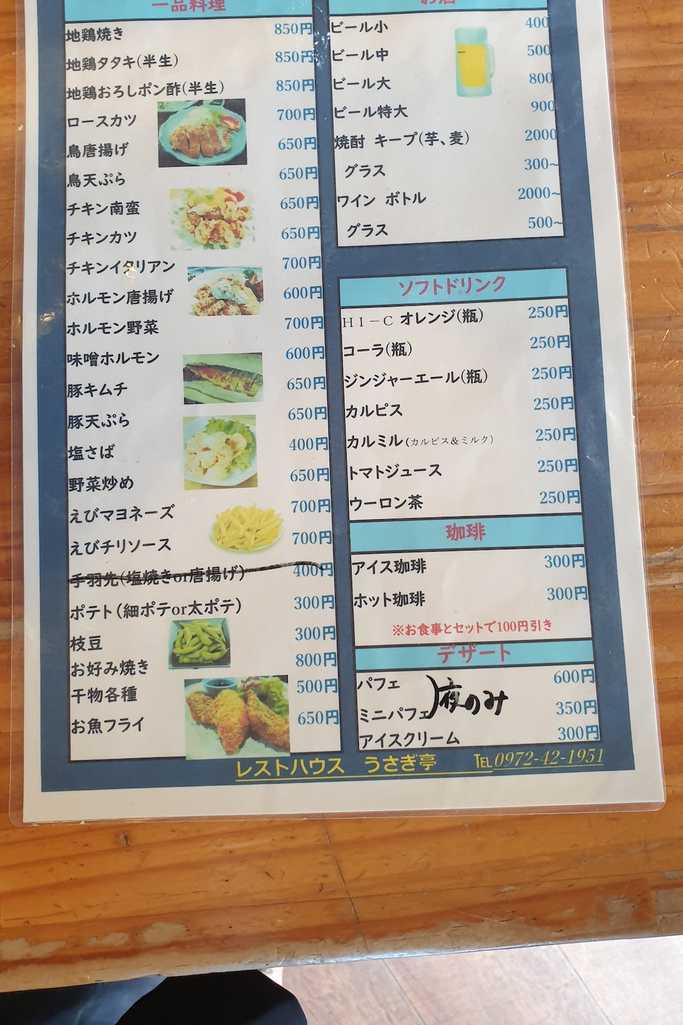 一品料理
地鶏焼き 850円
地鶏タタキ(半生) 850円
地鶏おろしポン酢(半生) 850円
ロースカツ 700円
鳥唐揚げ 650円
鳥天ぷら 650円
チキン南蛮 650円
チキンカツ 650円
チキンイタリアン 700円
ホルモン唐揚げ 600円
ホルモン野菜 700円
味噌ホルモン 600円
豚キムチ 650円
豚天ぷら 650円
塩さば 400円
野菜炒め 650円
えびマヨネーズ 700円
えびチリソース 700円
手羽先(塩焼きor唐揚げ) 400円
ポテト(細ポテor太ポテ) 300円
枝豆 300円
お好み焼き 800円
干物各種 500円
お魚フライ 650円
お酒
ビール小 400
ビール中 500
ビール大 800
ビール特大 900
焼酎 キープ(芋、麦) 2000
グラス 300~
ワイン ボトル 2000~
グラス 500~
ソフトドリンク
HI-C オレンジ(瓶) 250円
コーラ(瓶) 250円
ジンジャーエール(瓶) 250円
カルピス 250円
カルミル(カルピス&ミルク) 250円
トマトジュース 250円
ウーロン茶 250円
珈琲
アイス珈琲 300円
ホット珈琲 300円
※お食事とセットで100円引き
デザート
パフェ 600円
ミニパフェ 350円
)夜のみ
アイスクリーム 300円
レストハウス うさぎ亭 TEL0972-42-1951